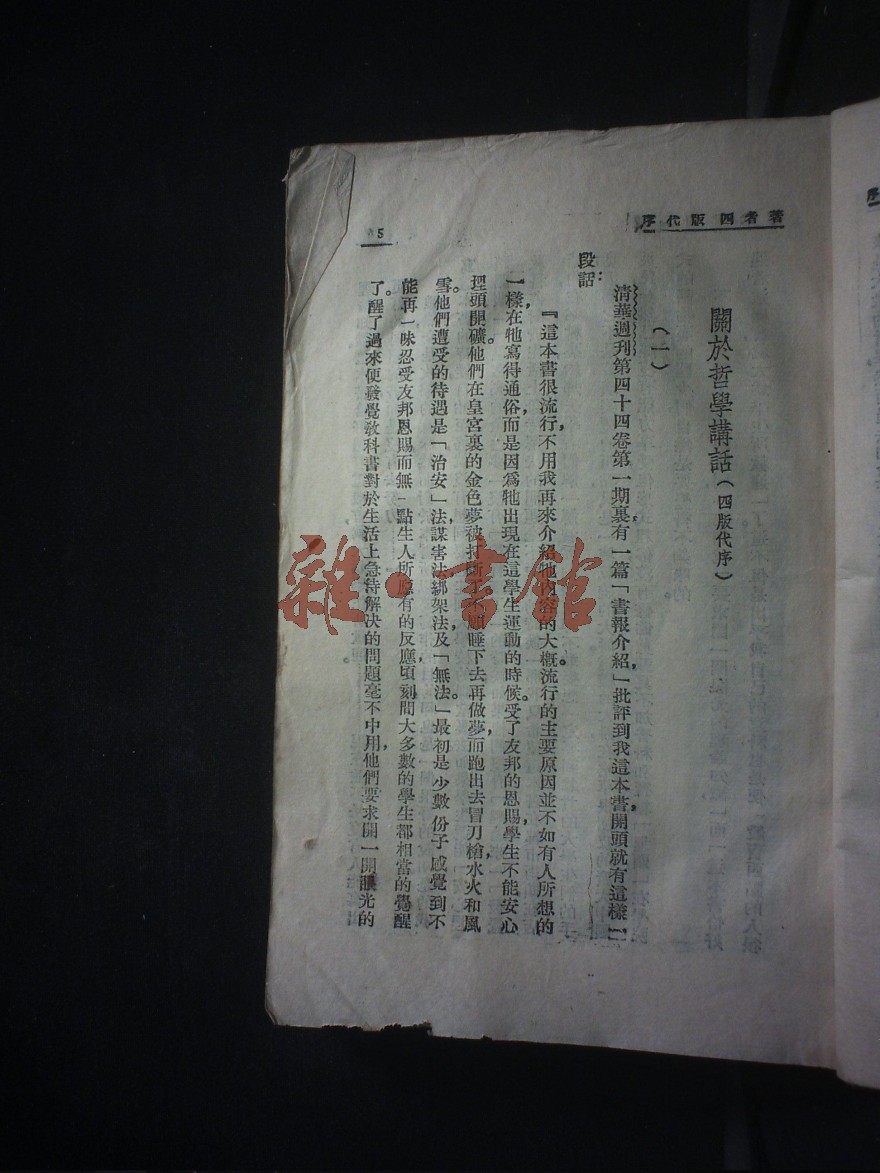 著者四版代序
關於哲學講話（四版代序）
（一）
清華週刊第四十四卷第一期裏，有一篇「書報介紹」，批評到我這本書，開頭就有這樣一
段話：
『這本書很流行，不用我再來介紹牠內容的大概。流行的主要原因並不如有人所想的
一樣，在牠寫得通俗，而是因爲牠出現在這學生運動的時候。受了友邦的恩賜，學生不能安心
埋頭開礦。他們在皇宮裏的金色夢被打斷了，不願睡下去再做夢，而跑出去冒刀槍水火和風
雪。他們遭受的待遇是「治安」法，謀害法，綁架法，及「無法。」最初是少數份子感覺到不
能再一味忍受友邦恩賜而無一點生人所應有的反應，頃刻間大多數的學生都相當的覺醒
了。醒了過來便發覺敎科書對於生活上急待解決的問題毫不中用，他們要求開一開眼光的
5
雜·書館